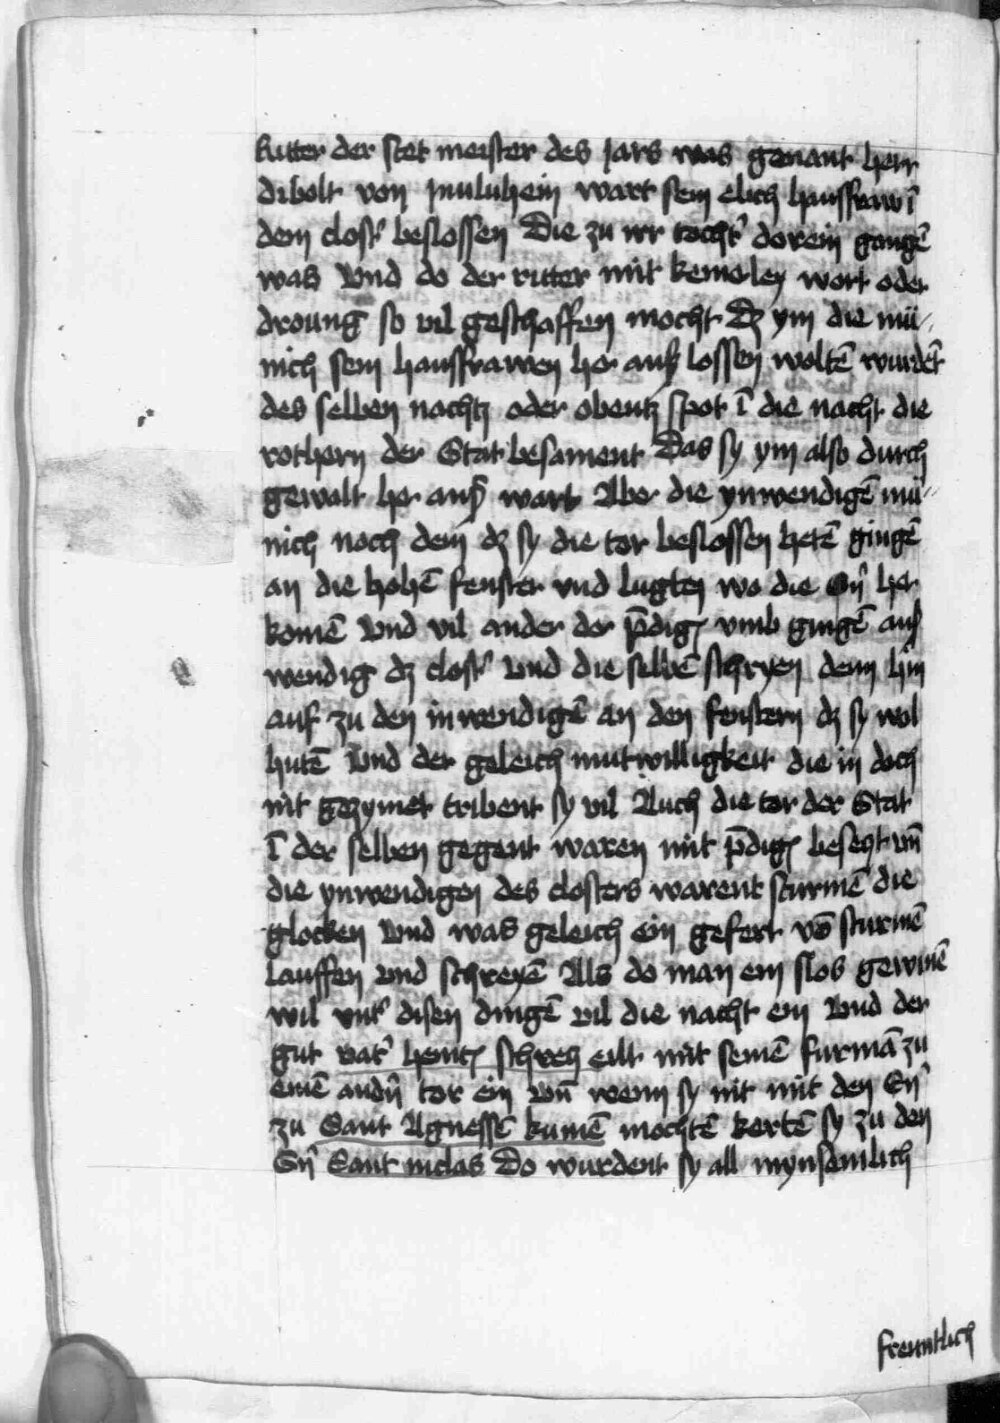 Ritter der stet meister des jars was genant herr
dibolt von muluhein wart sein elich hausfraw ī
dem clost' beslossen Die zu irr tocht' dorein gangē
was Vnd do der ritter mit keinerley wort oder
droung so vil geschaffen mocht dz ym die mü-
nich sein hausfrawen her auß lossen woltē wurdēt
des selben nachtz oder obentz spot ī die nacht die
rothern der Stat besament Das sy ym also durch
gewalt her auß wart Aber die ynwendigē mü-
nich noch dem dz sy die tor beslossen hetē gingē
an die hohē fenster vnd lugten wo die her
komē Vnd vil ander der p̄dig' vmb gingē auß
wendig dz clost' Vnd die selbē schryen denn hin
auf zu den inwendigē an den fenstern dz sy wol
hutē Vnd der geleich mutwilligkeit die in doch
nit gezymet tribent sy vil Auch die tor der Stat
ī der selben gegent waren mit p̄dig' beseczt vn̄
die ynwendigen des closters warent sturmē die
glocken Vnd was geleich ein gefert vō sturmē
lauffen vnd schreyē Als do man ein slos gewinē
wil vnt' disen dingē vil die nacht ein Vnd der
gut vat' heinr' schrey eilt mit seinē furmā zu
einē andn̄ tor ein Vn̄ wenn sy nit mit den
zu Sant Agnessē kumē mochtē kertē sy zu den
Sant niclas Do wurdent sy all mynsamlich
freuntlich